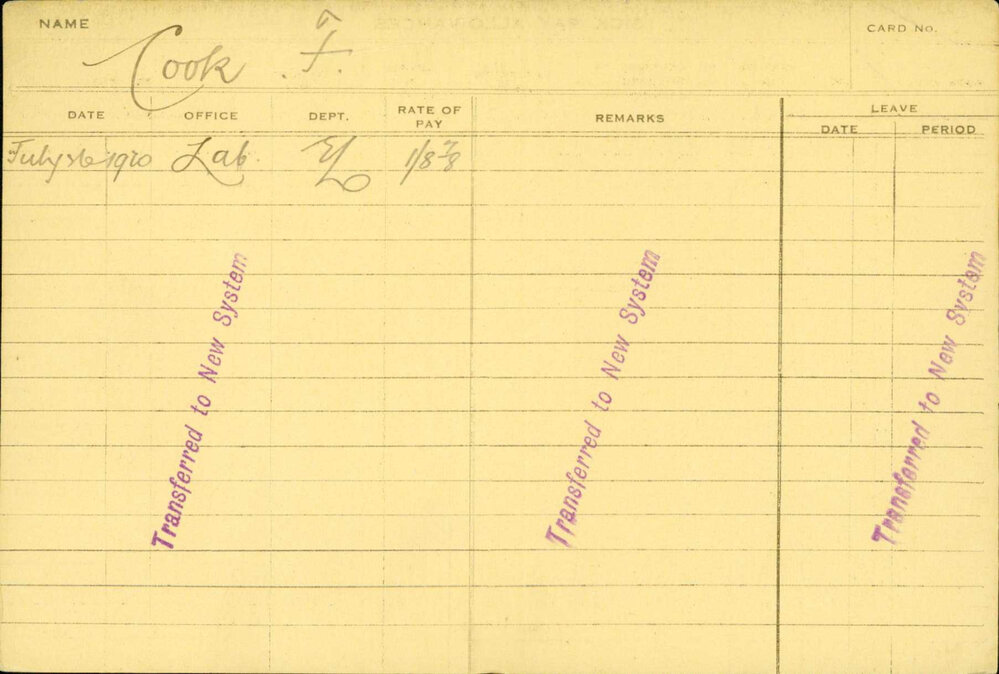 NAME Cook F. CARD No.
DATE OFFICE DEPT. RATE OF PAY REMARKS LEAVE
DATE PERIOD
July 26 1920 Lab. 1/8 7/8
Transferred to New System
Transferred to New System
Transferred to New System